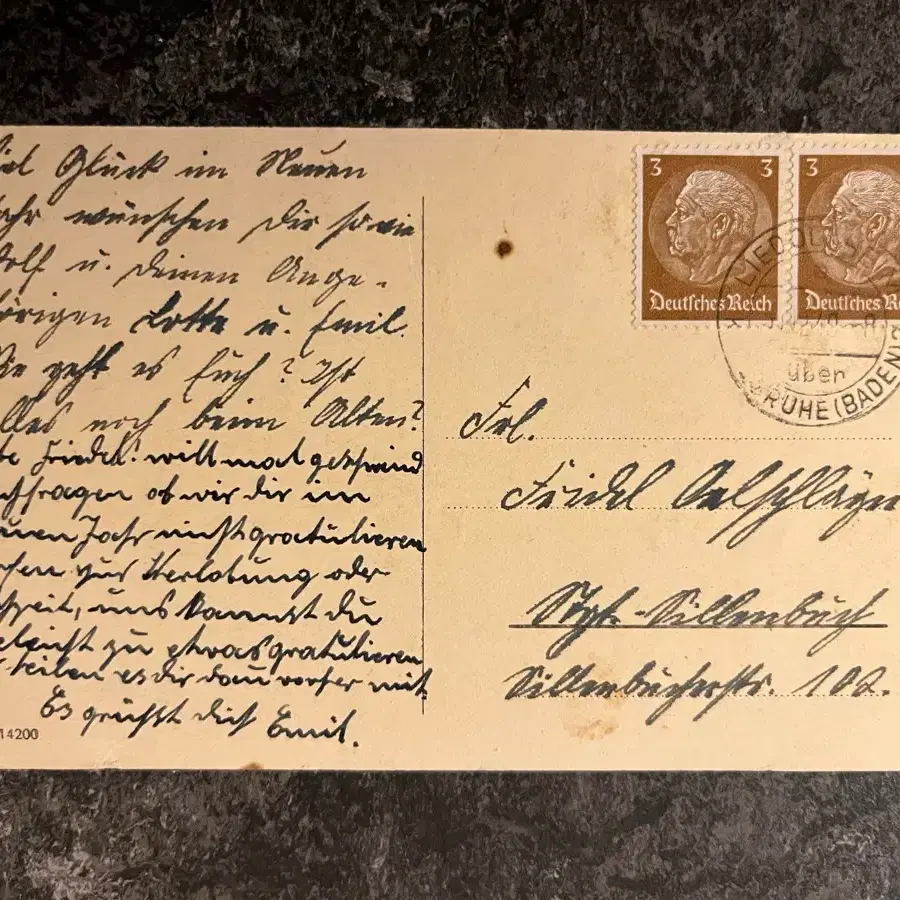 Glück im Neuen
wünschen Dir sowie
u. Deinen Ange-
hörigen Lotte u. Emil.
geht es Euch? Ist
Alles noch beim Alten?
Friedel! will mal geschwind
ob wir dir im
Jahr nicht gratulieren
zur Verlobung oder
uns kannst du
zu etwas gratulieren
teilen es dir dann vorher mit.
Es grüßt dich Emil.
14200
3 3
Deutsches Reich
3
Deutsches Reich
über
RUHE (BADEN) 2
Frl.
Friedel Oelschläger
Stgt.-Sillenbuch
Sillenbucherstr. 102.